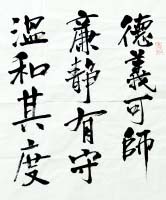 德義可師
廉靜有守
溫和其度